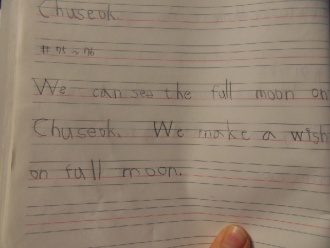 Chuseok.
We can see the full moon on
Chuseok. We make a wish
on full moon.